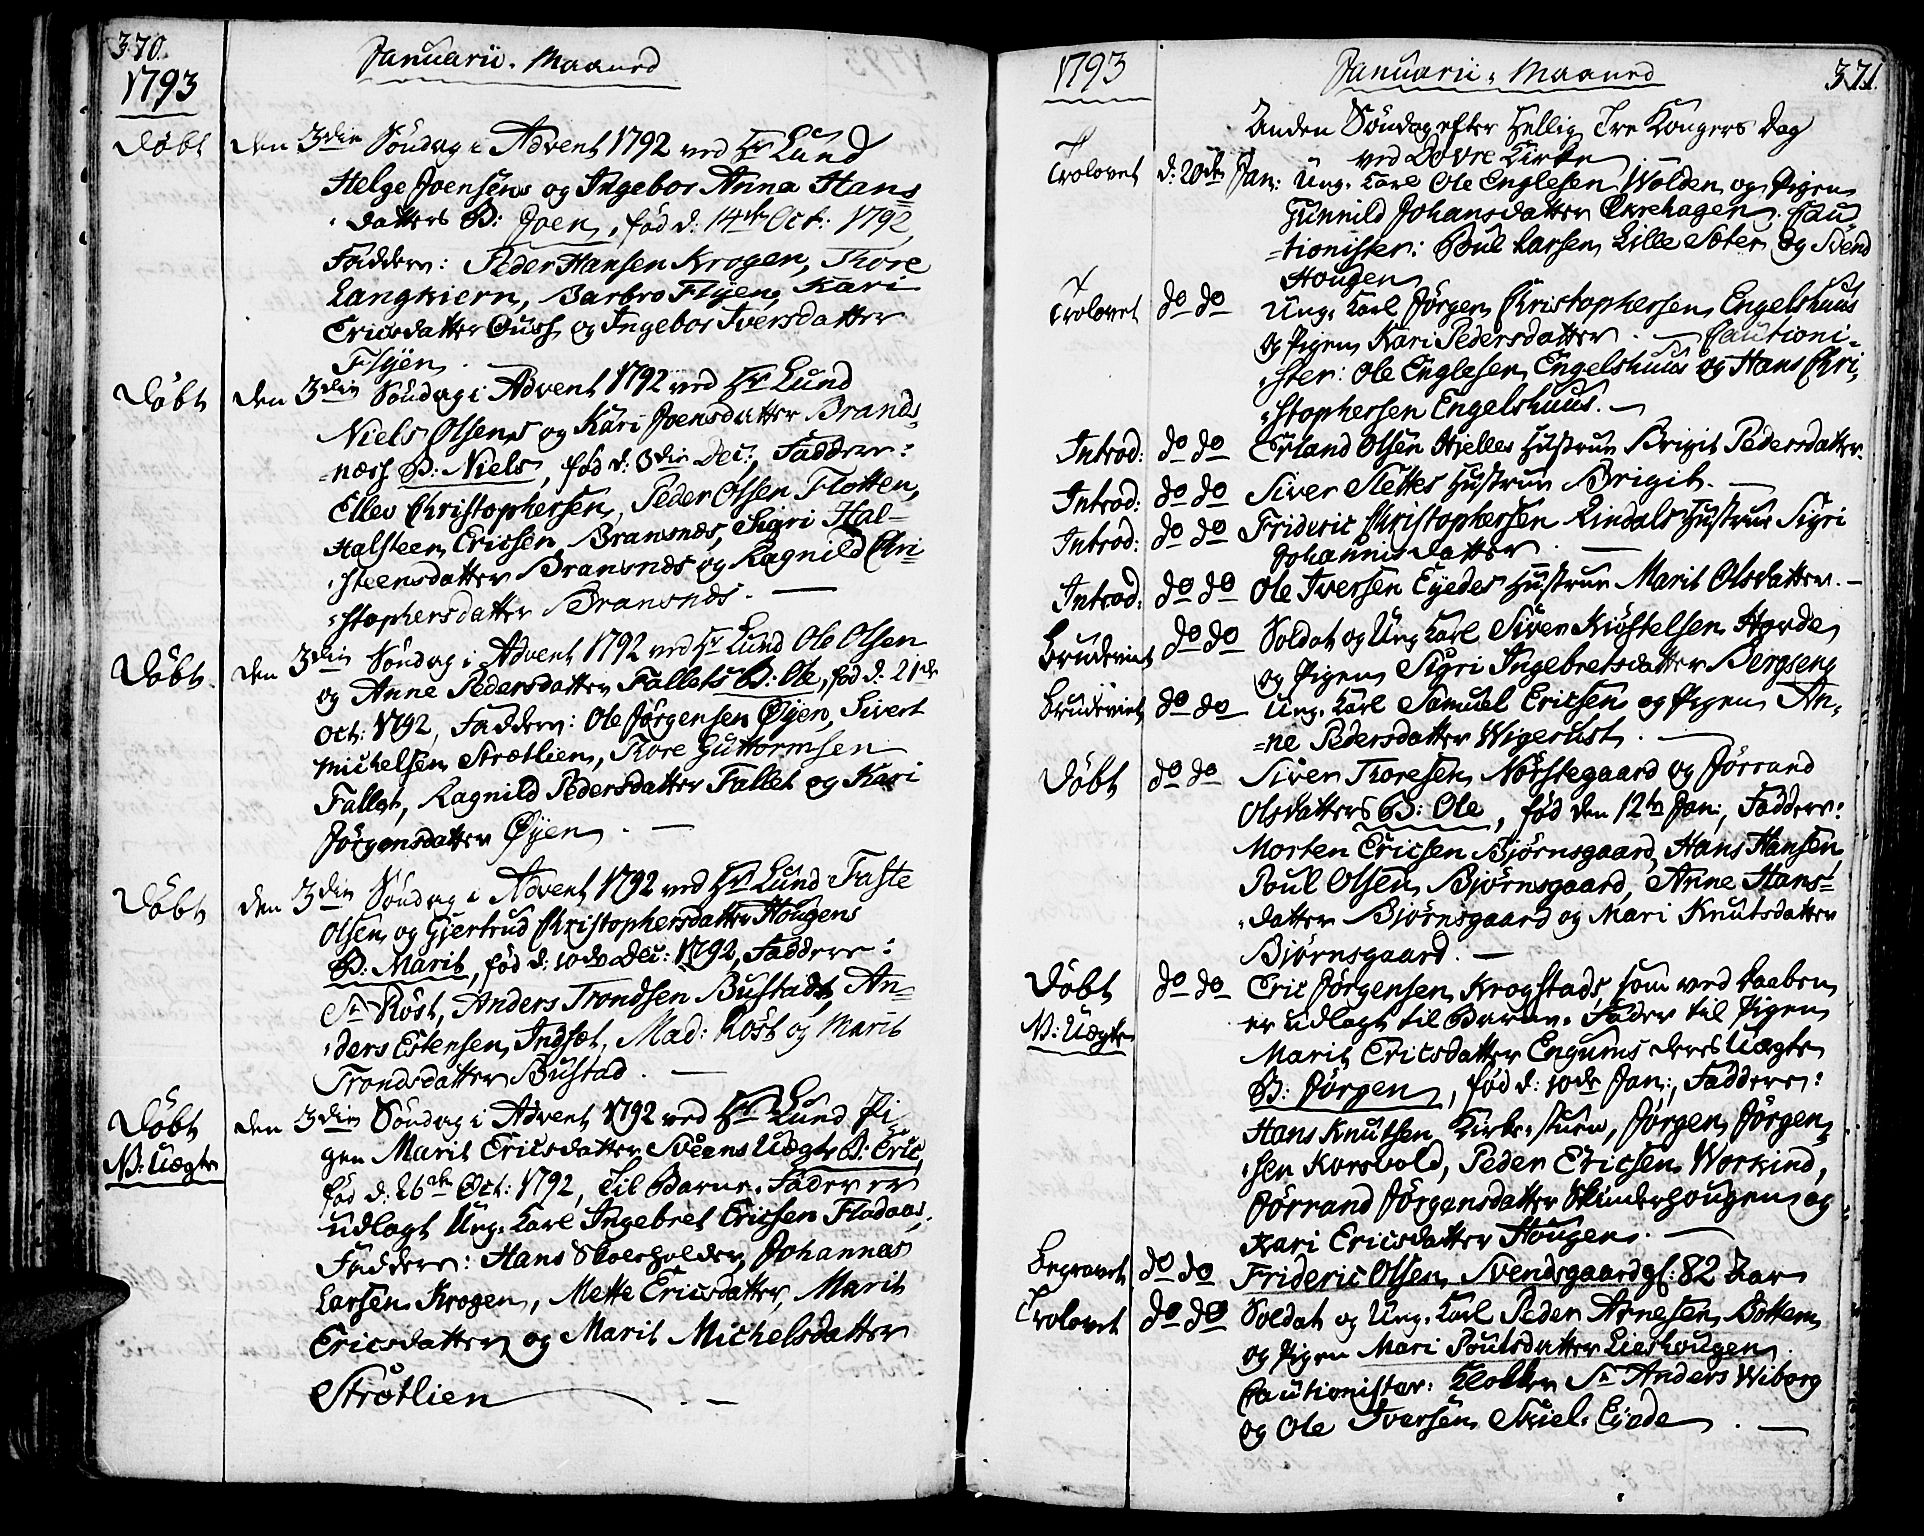 370.
1793
Januarii. Maaned
Døbt den 3die Søndag i Advent 1792 ved Hr Lund
Helge Joensens og Ingebor Anna Hans
datters B: Joen, fød d: 14de Oct: 1792,
Faddere: Peder Hansen Krogen, Thore
Langkiern, Barbro Flyen, Kari
Ericsdatter Øusf og Ingebor Iversdatter
Flyen.
Døbt den 3die Søndag i Advent 1792 ved Hr Lund
Niels Olsens og Kari Joensdatter Brands-
næss B: Niels, fød d: 3die Dec:, Faddere:
Ellev Christophersen, Peder Olsen Flotten,
Halsteen Ericsen Bransnæs, Sigri Hal-
steensdatter Bransnæs og Ragnild Chri-
stophersdatter Bransnæs.
Døbt den 3die Søndag i Advent 1792 ved Hr Lund Ole Olsen
og Anne Pedersdatter Fallets B: Ole, fød d: 21de
Oct: 1792, Faddere: Ole Jørgensen Øyen, Sivert
Michelsen Strætlien, Thore Guttormsen
Fallet, Ragnild Pedersdatter Fallet og Kari
Jørgensdatter Øyen.
Døbt den 3die Søndag i Advent 1792 ved Hr Lund Faste
Olsen og Gjertrud Christophersdatter Hougens
B: Marit, fød d: 10de Dec: 1792, Faddere:
Sr Røst, Anders Trondsen Bustad, An-
ders Estensen Indset, Mad: Røst og Marit
Trondsdatter Bustad.
Døbt den 3die Søndag i Advent 1792 ved Hr Lund Pi-
N: Uægte gen Marit Ericsdatter Sveens Uægte B: Eric,
fød d: 26de Oct: 1792, Til Barne-Fader er
udlagt Ung-Karl Ingebret Ericsen Flodaas,
Faddere: Hans Skoeholder, Johannes
Larsen Krogen, Mette Ericsdatter, Marit
Ericsdatter og Marit Michelsdatter
Strøtlien
1793
Januarii, Maaned
371.
Anden Søndag efter Hellig Tre Kongers Dag
ved Dovre Kirke
Trolovet d: 20de Jan: Ung. Karl Ole Englesen Wolden og Pigen
Gunnild Johansdatter Økrehagen. Cau-
tionister: Poul Larsen Lille Sæter og Svend
Hougen
Trolovet do do Ung. Karl Jørgen Christophersen Engelshuus
og Pigen Kari Pedersdatter. Cautioni-
ster: Ole Englesen Engelshuus og Hans Chri-
stophersen Engelshuus.
Introd: do do Erland Olsen Hielles Hustrue Brigit Pedersdatter
Introd: do do Siver Slettes Hustrue Brigit.
Introd: do do Frideric Christophersen Lindals Hustrue Sigri
Johannisdatter
Introd: do do Ole Iversen Eyedes Hustrue Marit Olsdatter.
Brudeviet do do Soldat og Ung Karl Siver Kiøstelsen Horde
og Pigen Sigri Ingebretsdatter Bergseng
Brudeviet do do Ung. Karl Samuel Ericsen og Pigen An-
ne Pedersdatter Wigerust.
Døbt do do Siver Thoresen Nørstegaard og Jørrand
Olsdatters B: Ole, fød den 12te Jan:, Faddere:
Morten Ericsen Bjørnsgaard, Hans Hansen
Poul Olsen Bjørnsgaard, Anne Hans-
datter Bjørnsgaard og Mari Knutsdatter
Bjørnsgaard.
Døbt do do Eric Jørgensen Krogstad, som ved Daaben
N: Uægte er udlagt til Barne-Fader til Pigen
Marit Ericsdatter Engums deres Uægte
B: Jørgen, fød d: 10de Jan:, Faddere:
Hans Knutsen Kirke-stuen, Jørgen Jørgen-
sen Korsvold, Peder Ericsen Workind,
Jørrand Jørgensdatter Skinderhougen og
Kari Ericsdatter Hougen.
Begravet do do Frideric Olsen Svendsgaard gl: 82 Aar
Trolovet do do Soldat og Ung. Karl Peder Arnesen Bottem
og Pigen Mari Poulsdatter Liehougen.
Cautionister: Klokker Sr Anders Wiborg
og Ole Iversen Skiel-Eyede.